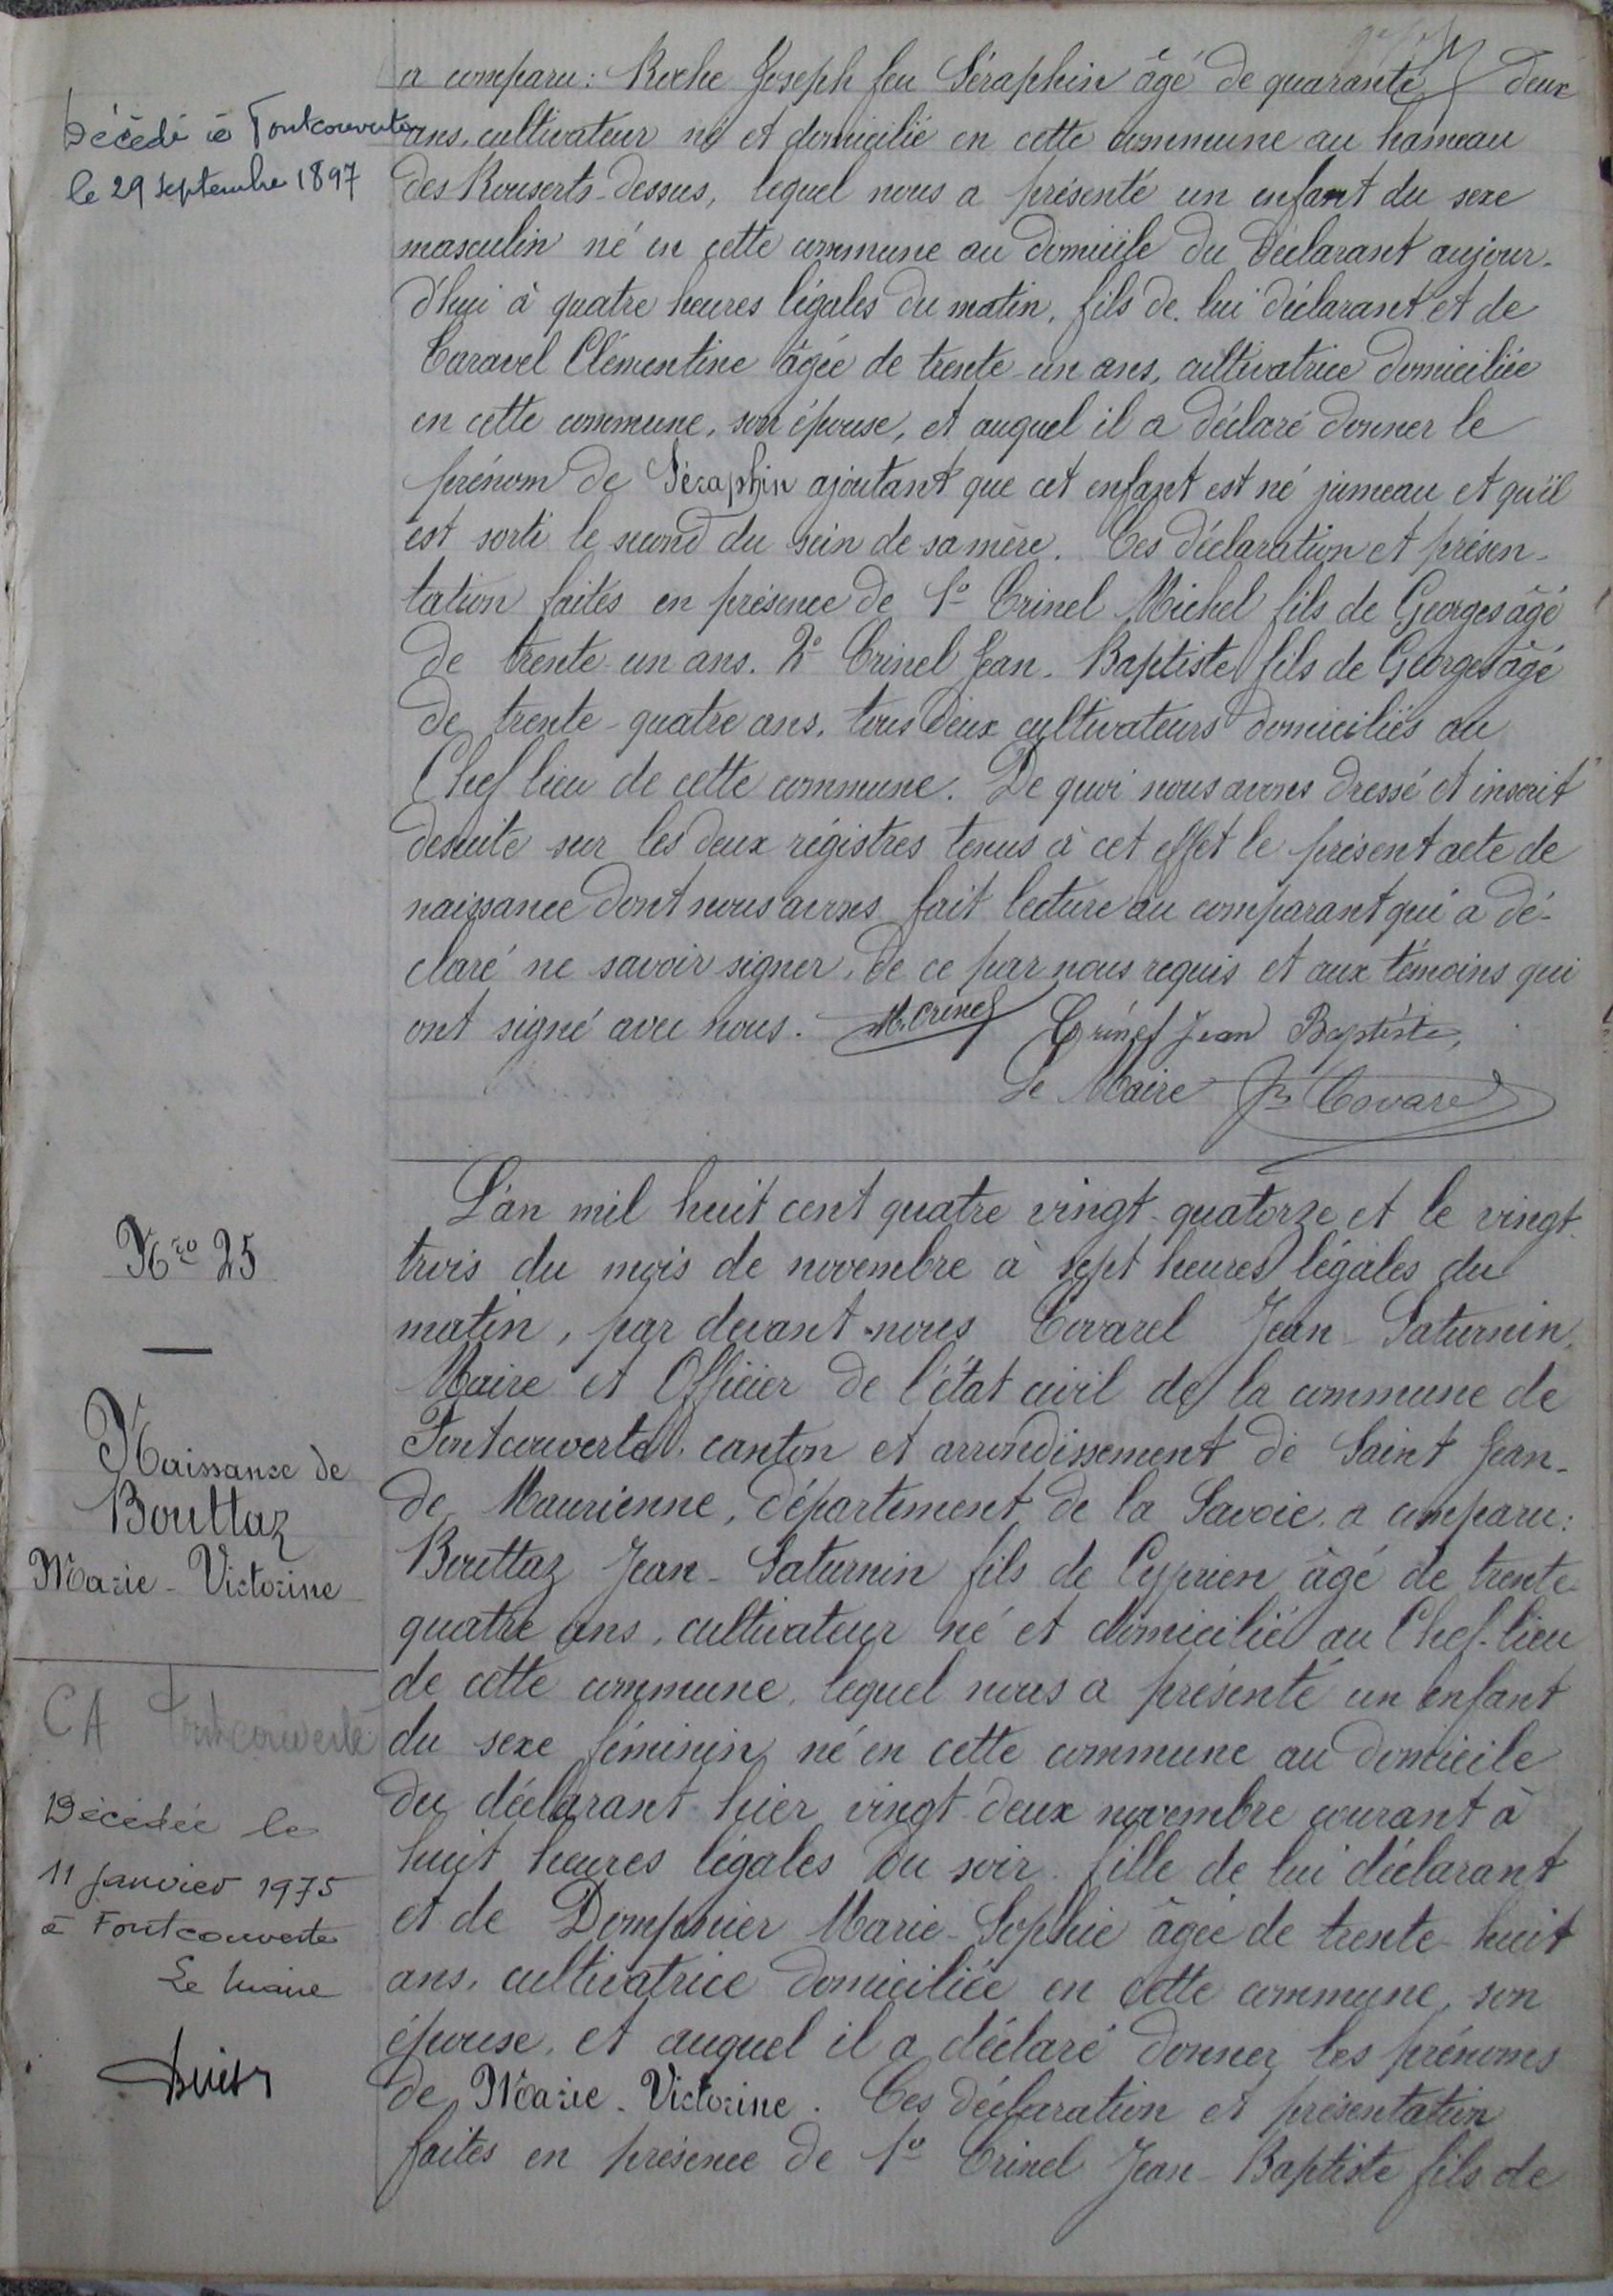 a comparu: Roche Joseph feu Séraphin âgé de quarante deux
Décédé à Fontcouverte
ans, cultivateur né et domicilié en cette commune au hameau
le 29 septembre 1897
des Rouserts-Dessus, lequel nous a présenté un enfant du sexe
masculin né en cette commune au domicile du déclarant aujour-
d'hui à quatre heures légales du matin, fils de lui déclarant et de
Caravel Clémentine âgée de trente-un ans, cultivatrice domiciliée
en cette commune, son épouse, et auquel il a déclaré donner le
prénom de Séraphin ajoutant que cet enfant est né jumeau et qu'il
est sorti le second du sein de sa mère. Ces déclaration et présen-
tation faites en présence de 1º Crinel Michel fils de Georges âgé
de trente-un ans. 2º Crinel Jean-Baptiste fils de Georges âgé
de trente-quatre ans, tous deux cultivateurs domiciliés au
Chef lieu de cette commune. De quoi nous avons dressé et inscrit
desuite sur les deux régistres tenus à cet effet le présent acte de
naissance dont nous avons fait lecture au comparant qui a dé-
claré ne savoir signer, de ce par nous requis et aux témoins qui
ont signé avec nous. M. Crinel Crinel Jean Baptiste,
Le Maire Covarel
Nro 25
Naissanse de
Bouttaz
Marie-Victorine
L'an mil huit cent quatre vingt-quatorze et le vingt-
trois du mois de novembre à sept heures légales du
matin, par devant nous Covarel Jean-Saturnin,
Maire et Officier de l'état civil de la commune de
Fontcouverte, canton et arrondissement de Saint Jean-
de Maurienne, département de la Savoie, a comparu:
Bouttaz Jean-Saturnin fils de Cyprien âgé de trente
quatre ans, cultivateur né et domicilié au Chef-lieu
de cette commune, lequel nous a présenté un enfant
du sexe féminin né en cette commune au domicile
du déclarant hier vingt-deux novembre courant à
huit heures légales du soir fille de lui déclarant
et de Dompnier Marie-Sophie âgée de trente-huit
ans, cultivatrice domiciliée en cette commune, son
épouse, et auquel il a déclaré donner les prénoms
de Marie-Victorine. Ces déclaration et présentation
faites en présence de 1º Crinel Jean-Baptiste fils de
CA Fontcouverte
Décédée le
11 janvier 1975
à Fontcouverte
Le Maire